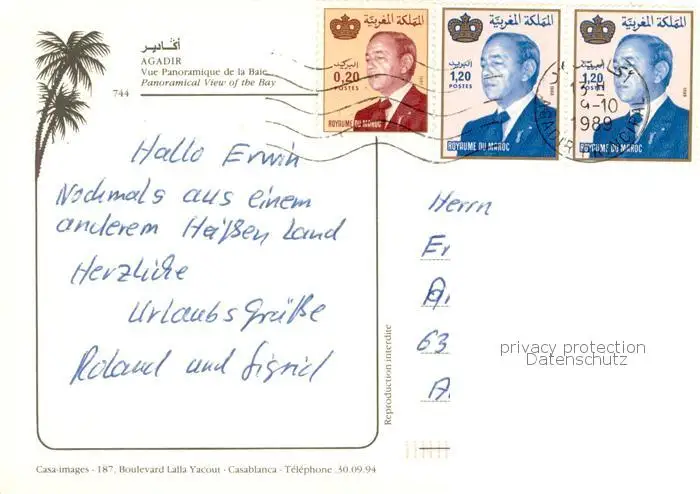 أكادير
AGADIR
Vue Panoramique de la Baie
Panoramical View of the Bay
744
المملكة المغربية
البريد
0,20
POSTES
ROYAUME DU MAROC
المملكة المغربية
البريد
1,20
POSTES
1988
ROYAUME DU MAROC
المملكة المغربية
البريد
1,20
POSTES
ROYAUME DU MAROC
4-10
1989
AGADIR PRINCIPAL
Hallo Erwin
Nochmals aus einem
anderem Heißen Land
Herzliche
Urlaubsgrüße
Roland und Sigrid
Herrn
Er
63
A
Reproduction interdite
privacy protection
Datenschutz
Casa-images - 187, Boulevard Lalla Yacout - Casablanca - Téléphone .30.09.94